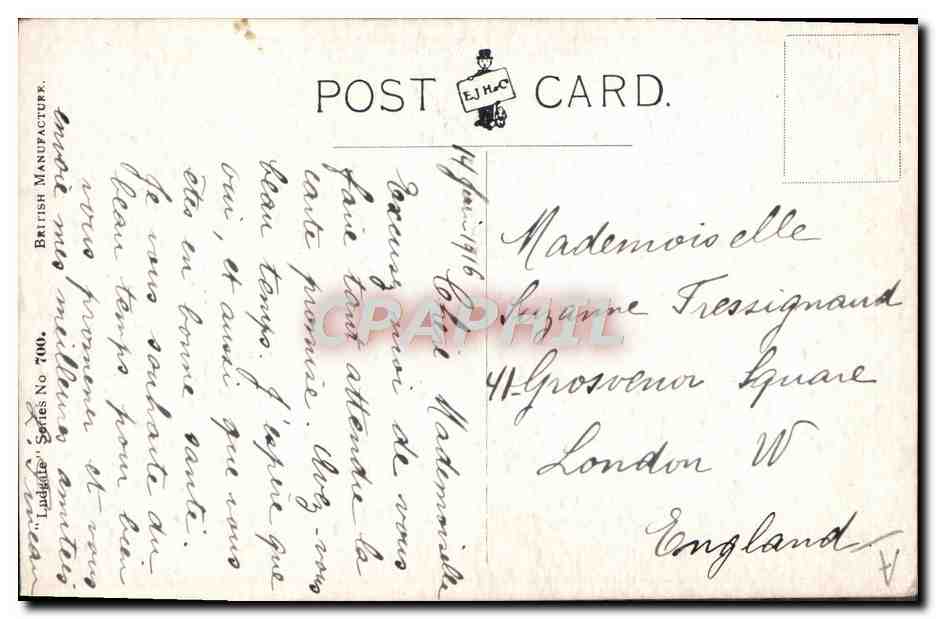 POST CARD.
E.J.H & Co
BRITISH MANUFACTURE.
"Ludgate" Series No 700.
14 juin 1916
Chère Mademoiselle
Excusez moi de vous
faire tant attendre la
carte promise. Avez-vous
beau temps. J'espère que
oui, et aussi que vous
êtes en bonne santé.
Je vous souhaite du
beau temps pour bien
vous promener et vous
envoie mes meilleures amitiés
Mademoiselle
Suzanne Tressignaud
41 Grosvenor Square
London W
England
CPAPHIL